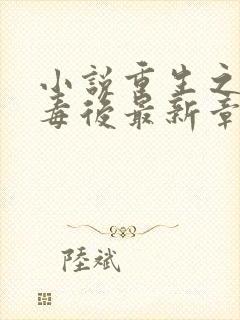 小說重生之
毒後最新章
陸斌